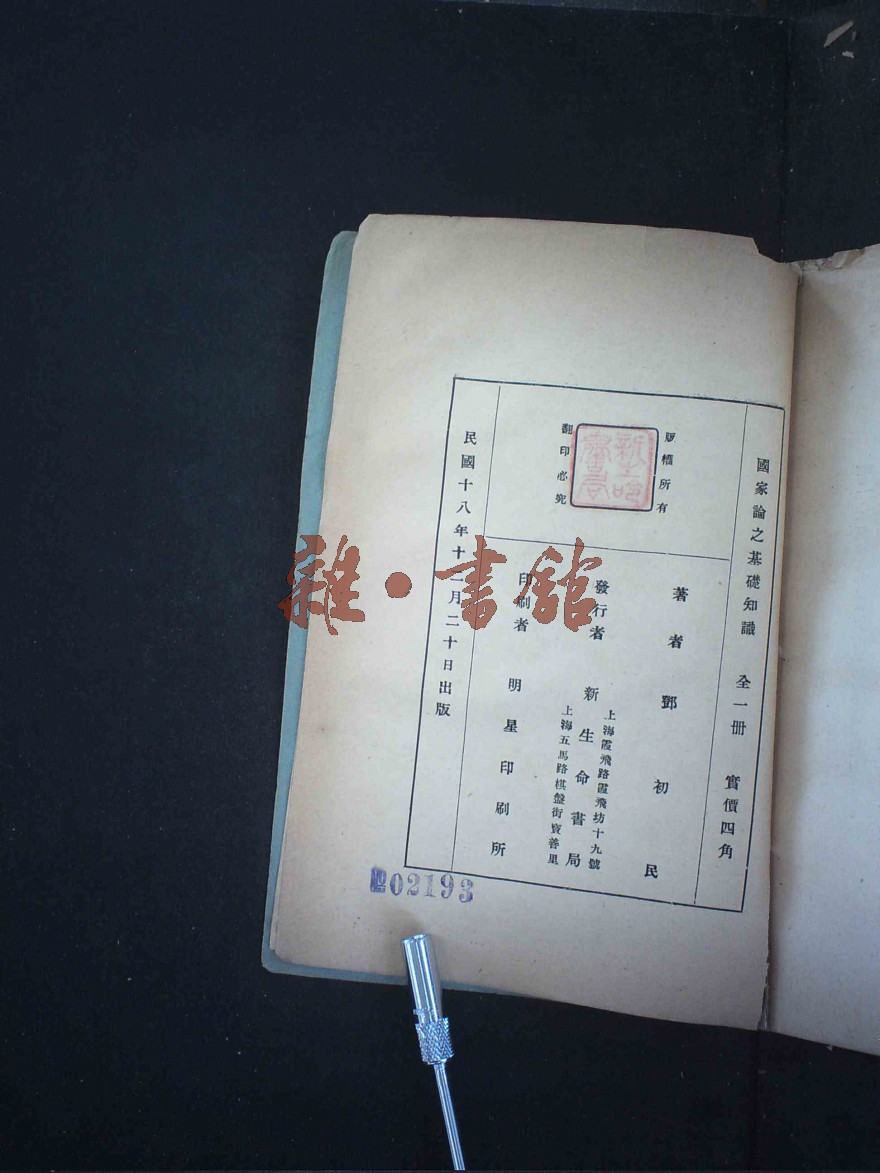 國家論之基礎知識 全一冊 實價四角
版權所有
翻印必究
新生命書局
著者 鄧初民
發行者 新生命書局
上海霞飛路霞飛坊十九號
上海五馬路棋盤街寶善里
印刷者 明星印刷所
民國十八年十二月二十日出版
02193
雜·書館